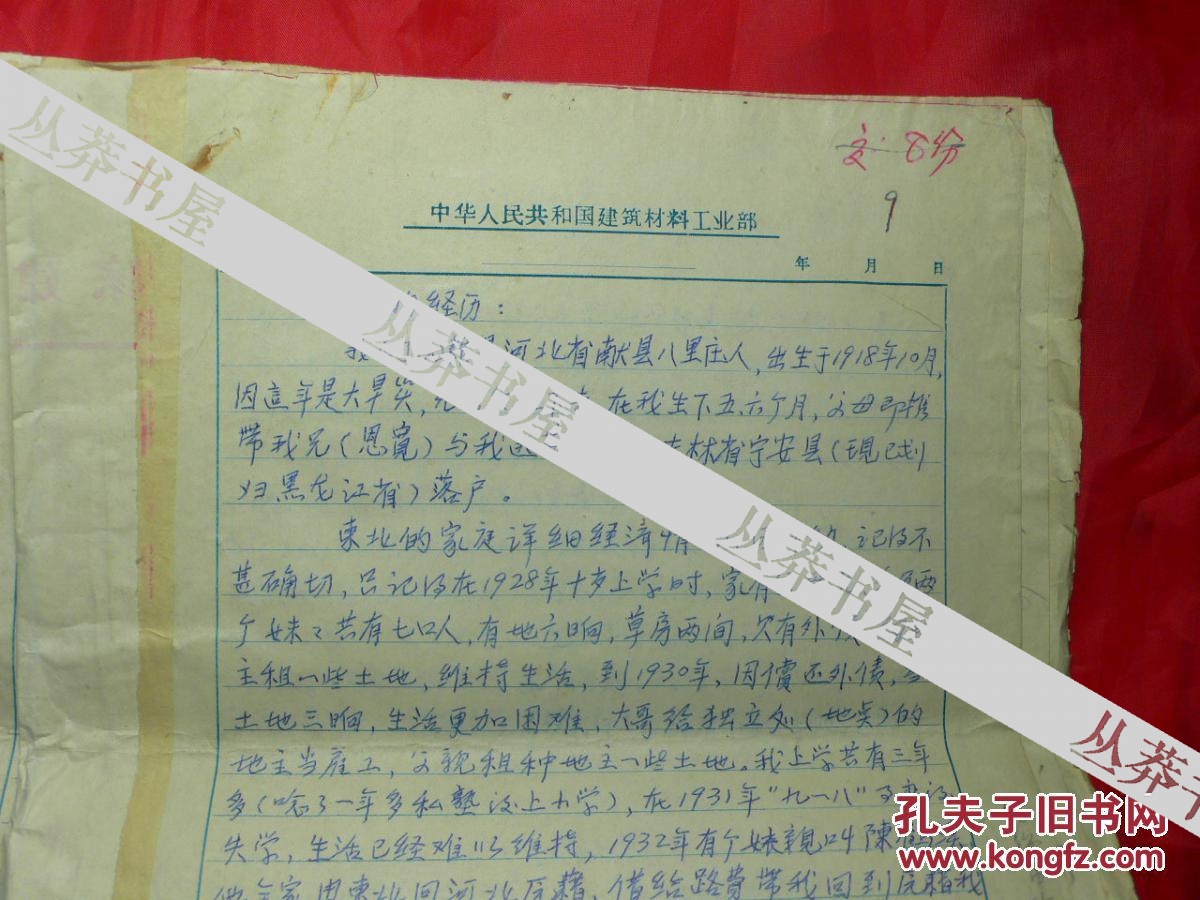 交. 8份
9
中华人民共和国建筑材料工业部
年 月 日
经历：
河北省献县八里庄人，出生于1918年10月，
因這年是大旱災，在我生下五六个月，父母即携
带我兄（恩寬）与我 林省宁安县（現已划
归黑龙江省）落户。
東北的家庭详细经济 記得不
甚确切，只记得在1928年十岁上学时，家有 两
个妹々共有七口人，有地六晌，草房两间，欠有外
主租一些土地，维持生活，到1930年，因償还外债，
土地三晌，生活更加困难，大哥给独立处（地矣）的
地主当雇工，父親租种地主一些土地。我上学共有三年
多（唸了一年多私塾没上小学），在1931年“九一八”
失学，生活已经难以维持，1932年有个姨親叫陳
他全家由東北回河北原籍，借给路費带我回到原籍我
丛莽书屋
丛莽书屋
丛莽书屋
丛莽书屋
孔夫子旧书网
www.kongfz.com